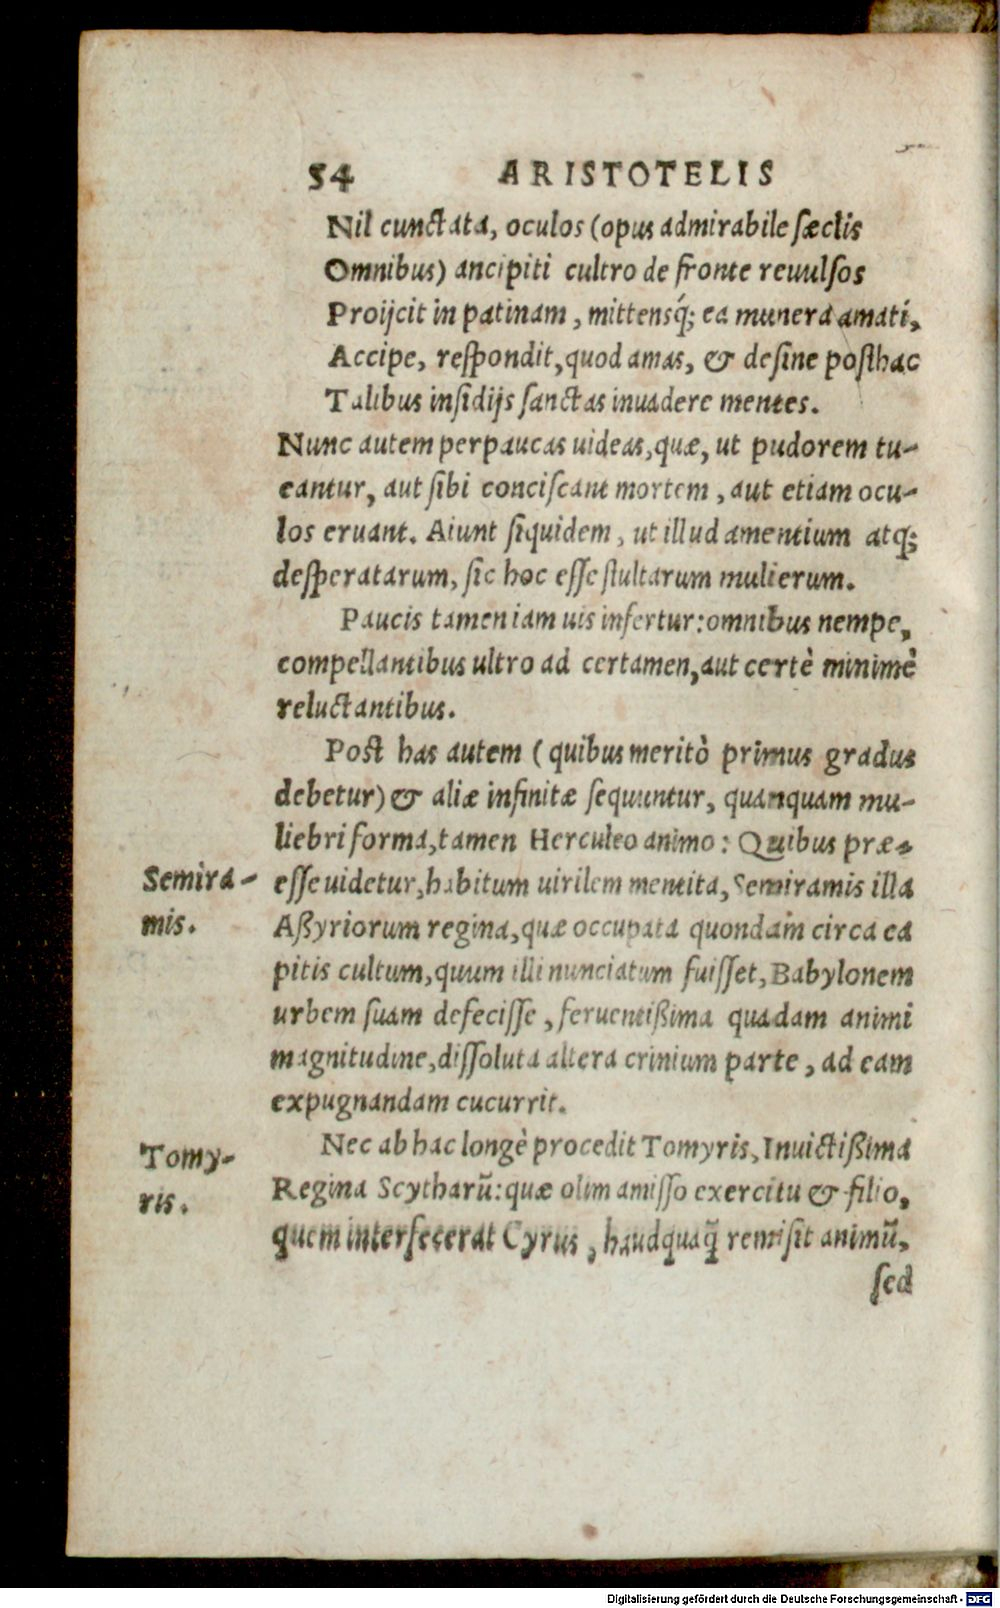 54 ARISTOTELIS
Nil cunctata, oculos (opus admirabile sæclis
Omnibus) ancipiti cultro de fronte reuulſos
Proijcit in patinam, mittensq́; ea munera amati,
Accipe, reſpondit, quod amas, & deſine poſthac
Talibus inſidijs ſanctas inuadere mentes.
Nunc autem perpaucas uideas, quæ, ut pudorem tu-
eantur, aut ſibi conciſcant mortem, aut etiam ocu-
los eruant. Aiunt ſiquidem, ut illud amentium atq;
deſperatarum, ſic hoc eſſe ſtultarum mulierum.
Paucis tamen iam uis infertur: omnibus nempe,
compellantibus ultro ad certamen, aut certè minimè
reluctantibus.
Post has autem (quibus meritò primus gradus
debetur) & aliæ infinitæ ſequuntur, quanquam mu-
liebri forma, tamen Herculeo animo: Quibus præ-
Semira-
mis.
eſſe uidetur, habitum uirilem mentita, Semiramis illa
Aßyriorum regina, quæ occupata quondam circa ca
pitis cultum, quum illi nunciatum fuiſſet, Babylonem
urbem ſuam defeciſſe, feruentißima quadam animi
magnitudine, diſſoluta altera crinium parte, ad eam
expugnandam cucurrit.
Tomy-
ris.
Nec ab hac longè procedit Tomyris, Inuictißima
Regina Scytharũ: quæ olim amiſſo exercitu & filio,
quem interfecerat Cyrus, haudquaq̃ remiſit animũ,
ſed
Digitalisierung gefördert durch die Deutsche Forschungsgemeinschaft - DFG